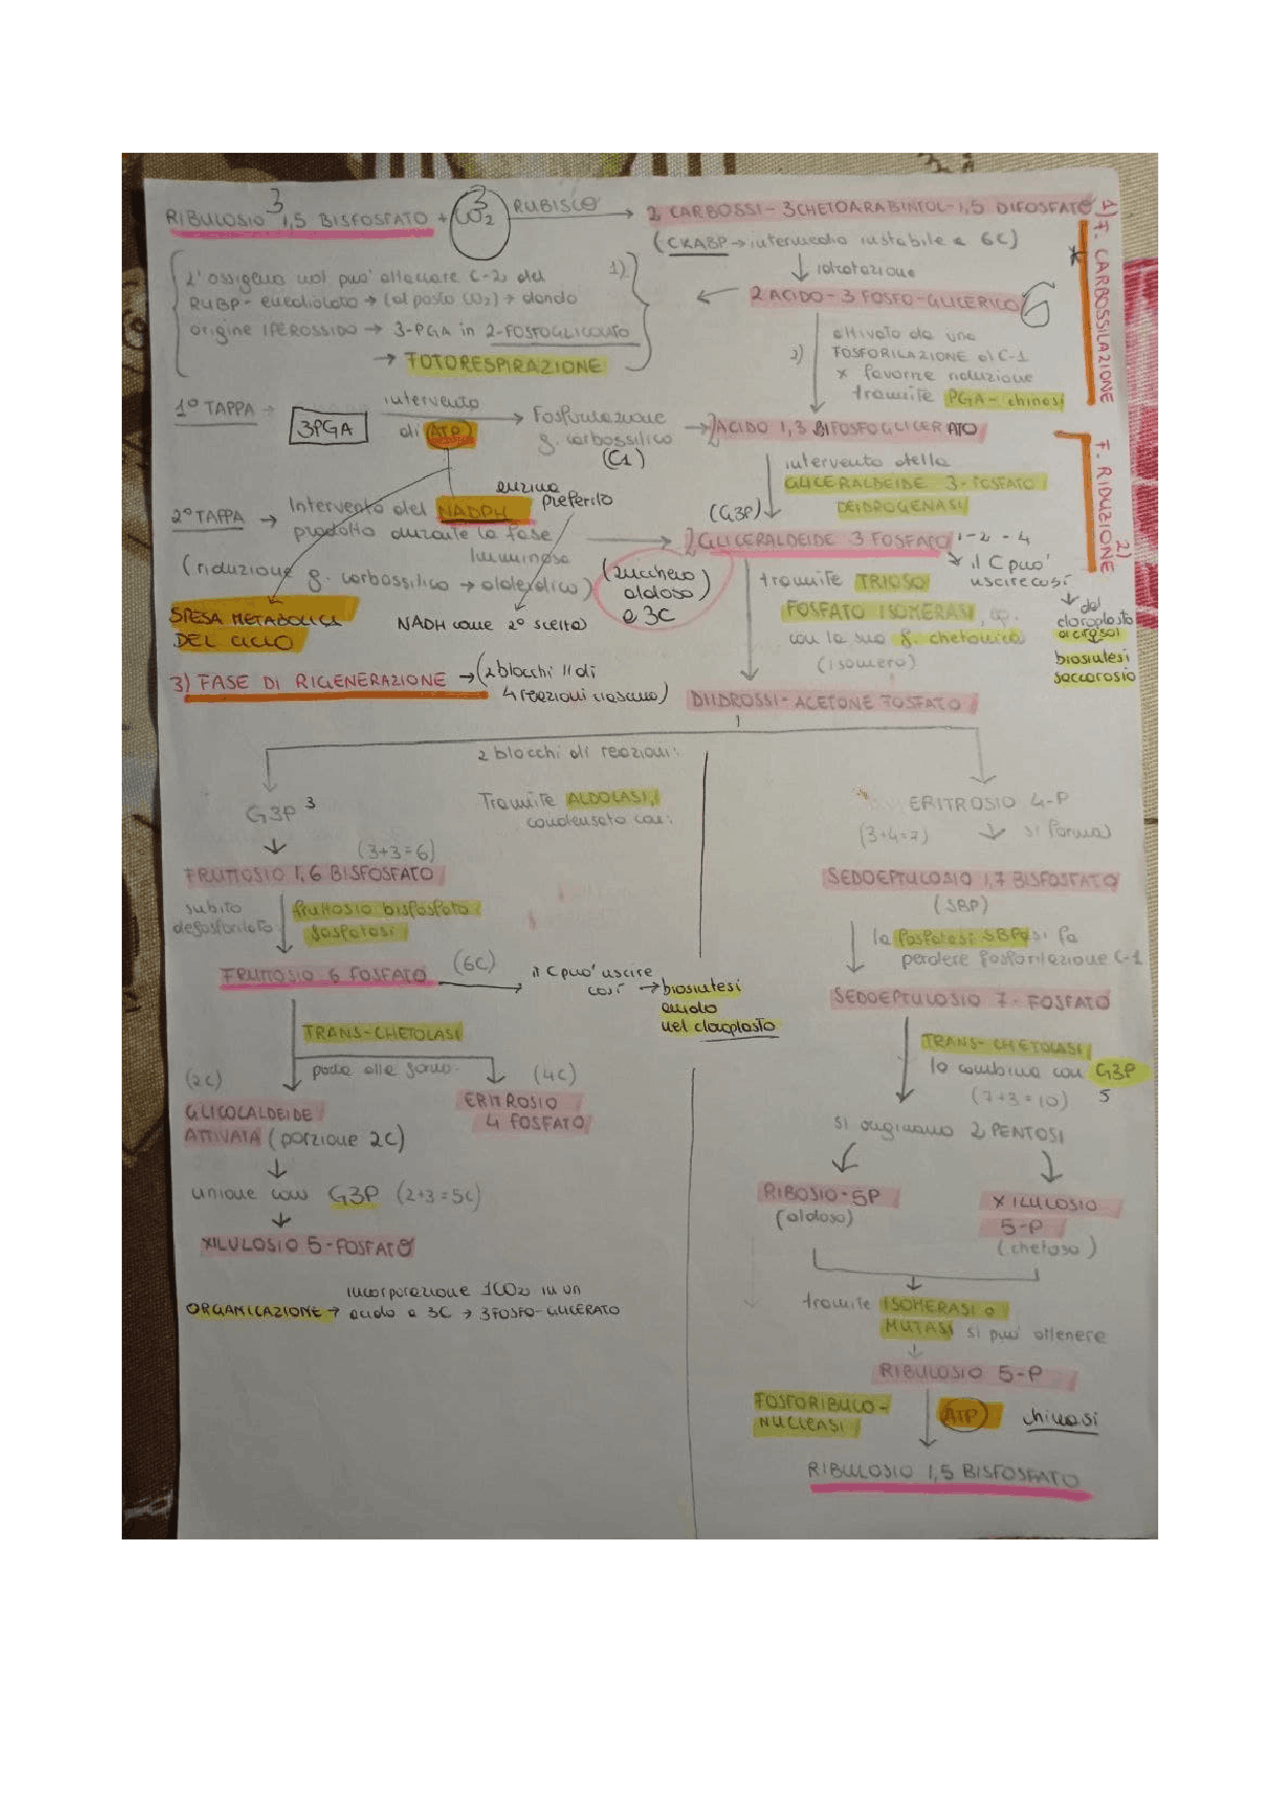 RIBULOSIO 3 1,5 BISFOSFATO + 3 CO2 RUBISCO → 2 CARBOSSI-3CHETOARABINTOL-1,5 DIFOSFATO
(CKABP → intermedio instabile a 6C)
↓ idratazione
2 ACIDO-3 FOSFO-GLICERICO 6
1) F. CARBOSSILAZIONE
L'ossigeno può attaccare C-2 del 1)
RUBP- (al posto CO2) → dando
origine IPEROSSIDO → 3-PGA in 2-FOSFOGLICOLATO
→ FOTORESPIRAZIONE
attivato da una
2) FOSFORILAZIONE al C-1
x favorire riduzione
tramite PGA-chinasi
1° TAPPA → 3PGA intervento di ATP → Fosforilazione
g. carbossilico
(C1)
→ 2 ACIDO 1,3 BIFOSFOGLICERATO
intervento della
GLICERALDEIDE 3-FOSFATO
DEIDROGENASI
(G3P)
2) F. RIDUZIONE
2° TAPPA → Intervento del NADPH
enzima
preferito
prodotto durante la fase
luminosa
(riduzione g. carbossilico → aldeidico)
NADH come 2° scelta)
SPESA METABOLICA
DEL CICLO
→ 2 GLICERALDEIDE 3 FOSFATO 1-2-4
(zucchero)
aldoso
a 3C
il C può
uscire così
↓ dal
cloroplasto
al citosol
biosintesi
saccarosio
tramite TRIOSO
FOSFATO ISOMERASI,
con la sua g. chetonica
(isomero)
3) FASE DI RIGENERAZIONE → (2 blocchi // di
4 reazioni ciascuno)
DIIDROSSI-ACETONE FOSFATO
2 blocchi di reazioni:
Tramite ALDOLASI,
condensato con:
G3P 3
↓ (3+3=6)
FRUTTOSIO 1,6 BISFOSFATO
subito
defosforilato
fruttosio bisfosfato
fosfatasi
FRUTTOSIO 6 FOSFATO (6C) → il C può uscire
così → biosintesi
amido
nel cloroplasto
TRANS-CHETOLASI
porta alla form.
(2C)
GLICOLALDEIDE
ATTIVATA (porzione 2C)
(4C)
ERITROSIO
4 FOSFATO
↓
unione con G3P (2+3=5C)
↓
XILULOSIO 5-FOSFATO
incorporazione 1CO2 in un
ORGANICAZIONE → acido a 3C → 3FOSFO-GLICERATO
ERITROSIO 4-P
(3+4=7) ↓ si forma
SEDOEPTULOSIO 1,7 BISFOSFATO
(SBP)
la fosfatasi SBPasi fa
perdere fosforilazione C-1
SEDOEPTULOSIO 7-FOSFATO
TRANS-CHETOLASI
lo combina con G3P
(7+3=10) 5
si originano 2 PENTOSI
RIBOSIO-5P
(aldoso)
XILULOSIO
5-P
(chetoso)
tramite ISOMERASI o
MUTASI si può ottenere
↓
RIBULOSIO 5-P
FOSFORIBULO-
NUCLEASI
ATP chinasi
RIBULOSIO 1,5 BISFOSFATO